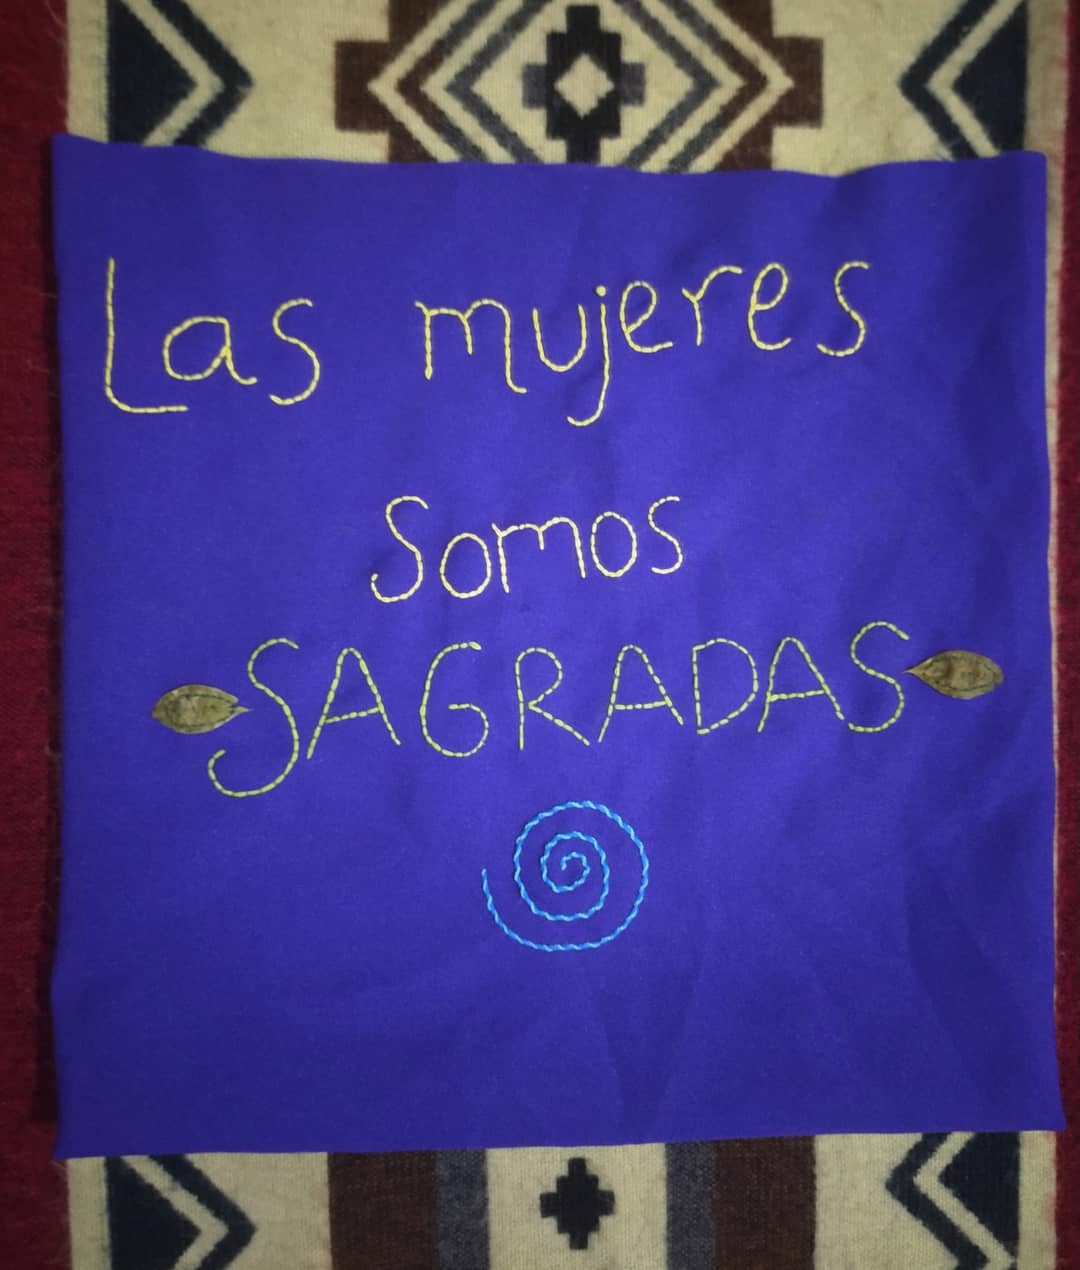 Las mujeres
Somos
SAGRADAS